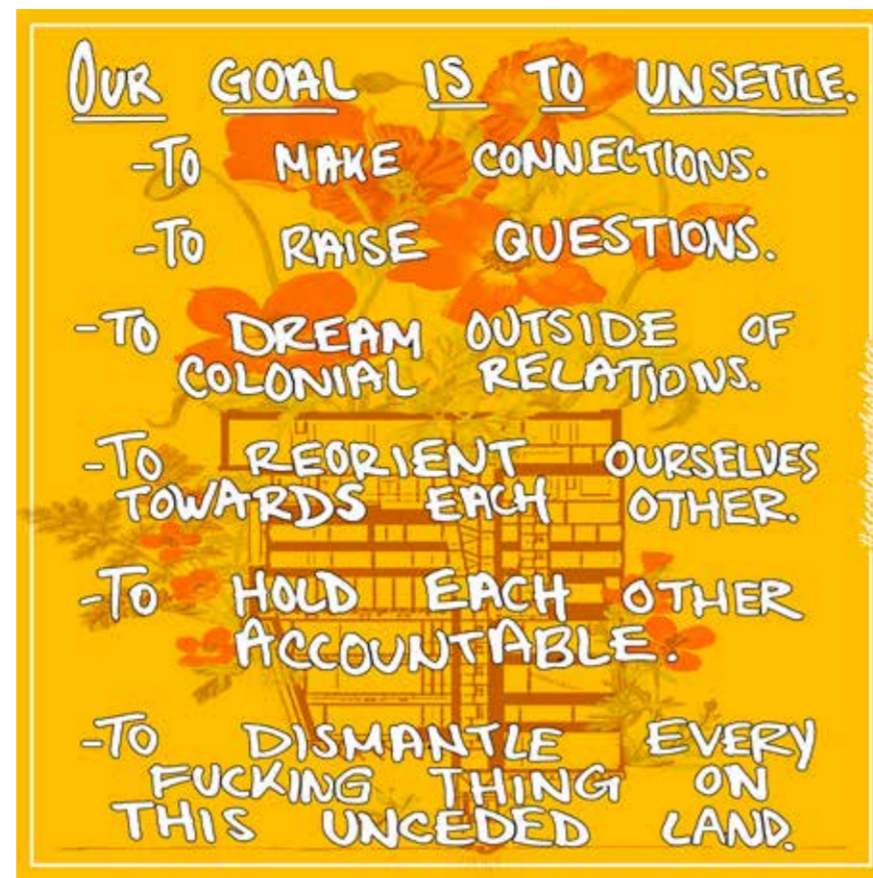 OUR GOAL IS TO UNSETTLE.
-TO MAKE CONNECTIONS.
-TO RAISE QUESTIONS.
-TO DREAM OUTSIDE OF
COLONIAL RELATIONS.
-TO REORIENT OURSELVES
TOWARDS EACH OTHER.
-TO HOLD EACH OTHER
ACCOUNTABLE.
-TO DISMANTLE EVERY
FUCKING THING ON
THIS UNCEDED LAND.